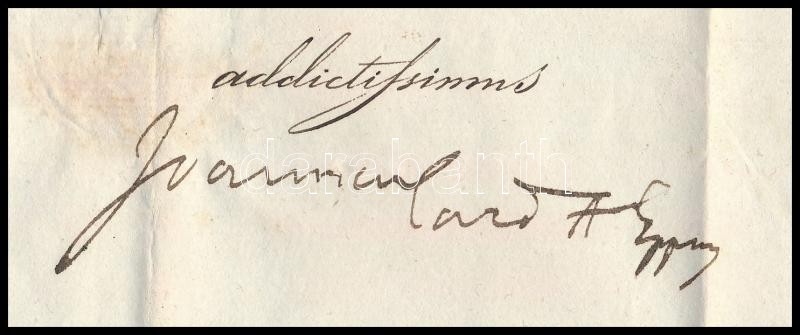 addictiſsimus
Joannes Card A Eppus
darabanth